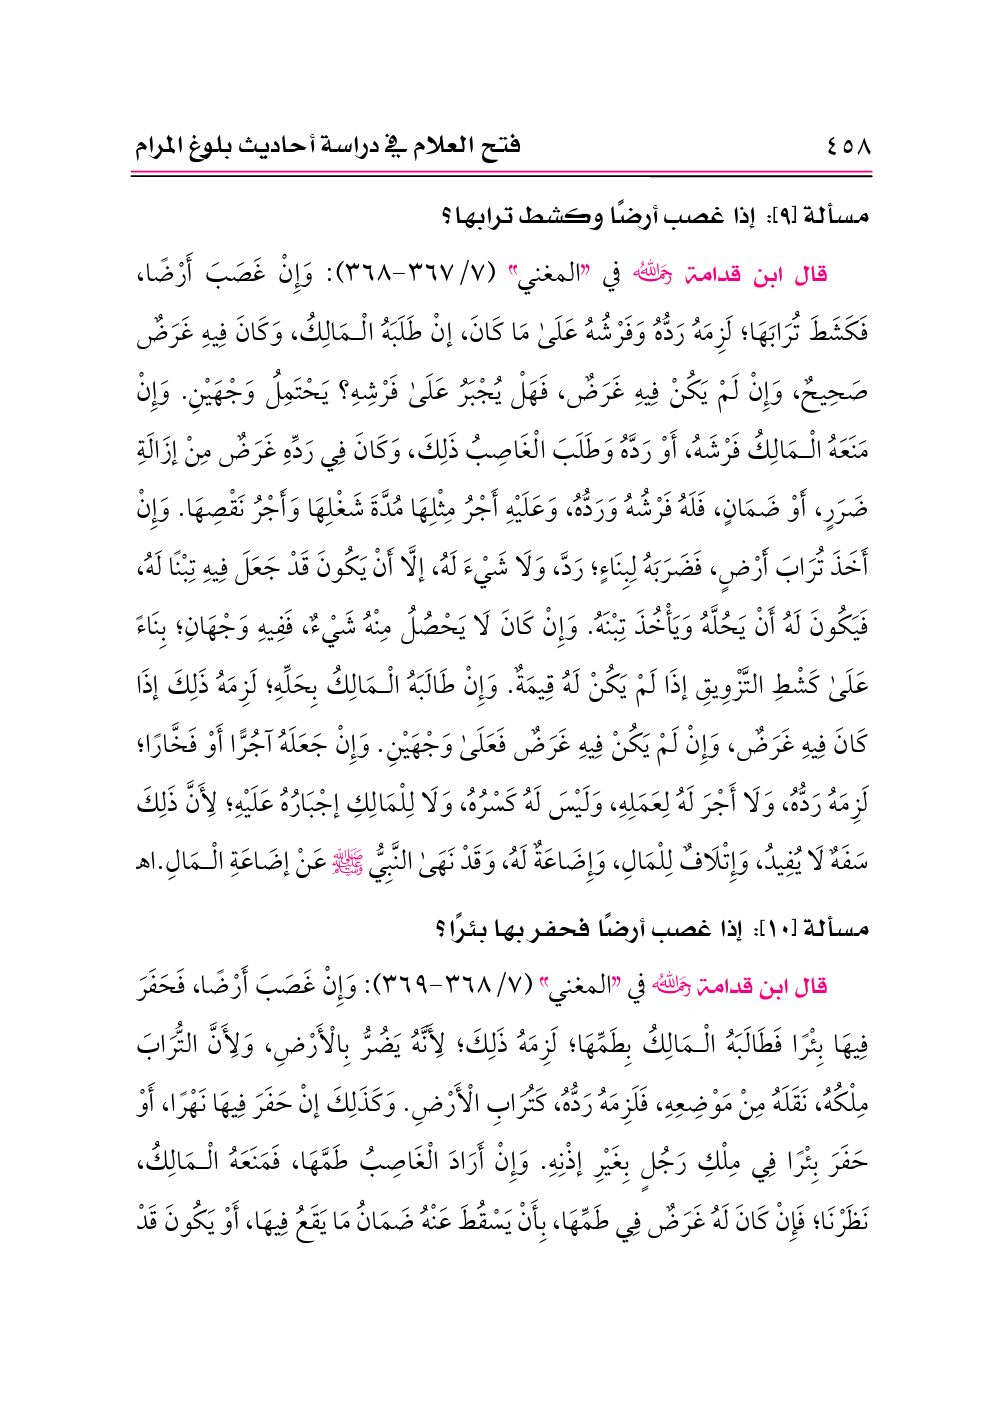 ٤٥٨ فتح العلام في دراسة أحاديث بلوغ المرام
مسألة [٩]: إذا غصب أرضًا وكشط ترابها؟
قال ابن قدامة رحمه الله في "المغني" (٧/ ٣٦٧-٣٦٨): وَإِنْ غَصَبَ أَرْضًا،
فَكَشَطَ تُرَابَهَا؛ لَزِمَهُ رَدُّهُ وَفَرْشُهُ عَلَىٰ مَا كَانَ، إنْ طَلَبَهُ الْـمَالِكُ، وَكَانَ فِيهِ غَرَضٌ
صَحِيحٌ، وَإِنْ لَمْ يَكُنْ فِيهِ غَرَضٌ، فَهَلْ يُجْبَرُ عَلَىٰ فَرْشِهِ؟ يَحْتَمِلُ وَجْهَيْنِ. وَإِنْ
مَنَعَهُ الْـمَالِكُ فَرْشَهُ، أَوْ رَدَّهُ وَطَلَبَ الْغَاصِبُ ذَلِكَ، وَكَانَ فِي رَدِّهِ غَرَضٌ مِنْ إزَالَةِ
ضَرَرٍ، أَوْ ضَمَانٍ، فَلَهُ فَرْشُهُ وَرَدُّهُ، وَعَلَيْهِ أَجْرُ مِثْلِهَا مُدَّةَ شَغْلِهَا وَأَجْرُ نَقْصِهَا. وَإِنْ
أَخَذَ تُرَابَ أَرْضٍ، فَضَرَبَهُ لِبِنَاءٍ؛ رَدَّ، وَلَا شَيْءَ لَهُ، إلَّا أَنْ يَكُونَ قَدْ جَعَلَ فِيهِ تِبْنًا لَهُ،
فَيَكُونَ لَهُ أَنْ يَحُلَّهُ وَيَأْخُذَ تِبْنَهُ. وَإِنْ كَانَ لَا يَحْصُلُ مِنْهُ شَيْءٌ، فَفِيهِ وَجْهَانِ؛ بِنَاءً
عَلَىٰ كَشْطِ التَّزْوِيقِ إذَا لَمْ يَكُنْ لَهُ قِيمَةٌ. وَإِنْ طَالَبَهُ الْـمَالِكُ بِحَلِّهِ؛ لَزِمَهُ ذَلِكَ إذَا
كَانَ فِيهِ غَرَضٌ، وَإِنْ لَمْ يَكُنْ فِيهِ غَرَضٌ فَعَلَىٰ وَجْهَيْنِ. وَإِنْ جَعَلَهُ آجُرًّا أَوْ فَخَّارًا؛
لَزِمَهُ رَدُّهُ، وَلَا أَجْرَ لَهُ لِعَمَلِهِ، وَلَيْسَ لَهُ كَسْرُهُ، وَلَا لِلْمَالِكِ إجْبَارُهُ عَلَيْهِ؛ لِأَنَّ ذَلِكَ
سَفَهٌ لَا يُفِيدُ، وَإِتْلَافٌ لِلْمَالِ، وَإِضَاعَةٌ لَهُ، وَقَدْ نَهَىٰ النَّبِيُّ ﷺ عَنْ إضَاعَةِ الْـمَالِ.اهـ
مسألة [١٠]: إذا غصب أرضًا فحفر بها بئرًا؟
قال ابن قدامة رحمه الله في "المغني" (٧/ ٣٦٨-٣٦٩): وَإِنْ غَصَبَ أَرْضًا، فَحَفَرَ
فِيهَا بِئْرًا فَطَالَبَهُ الْـمَالِكُ بِطَمِّهَا؛ لَزِمَهُ ذَلِكَ؛ لِأَنَّهُ يَضُرُّ بِالْأَرْضِ، وَلِأَنَّ التُّرَابَ
مِلْكُهُ، نَقَلَهُ مِنْ مَوْضِعِهِ، فَلَزِمَهُ رَدُّهُ، كَتُرَابِ الْأَرْضِ. وَكَذَلِكَ إنْ حَفَرَ فِيهَا نَهْرًا، أَوْ
حَفَرَ بِئْرًا فِي مِلْكِ رَجُلٍ بِغَيْرِ إذْنِهِ. وَإِنْ أَرَادَ الْغَاصِبُ طَمَّهَا، فَمَنَعَهُ الْـمَالِكُ،
نَظَرْنَا؛ فَإِنْ كَانَ لَهُ غَرَضٌ فِي طَمِّهَا، بِأَنْ يَسْقُطَ عَنْهُ ضَمَانُ مَا يَقَعُ فِيهَا، أَوْ يَكُونَ قَدْ